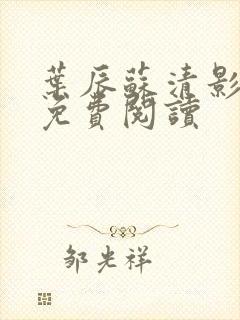 葉辰蘇清影
免費閱讀
鄒光祥